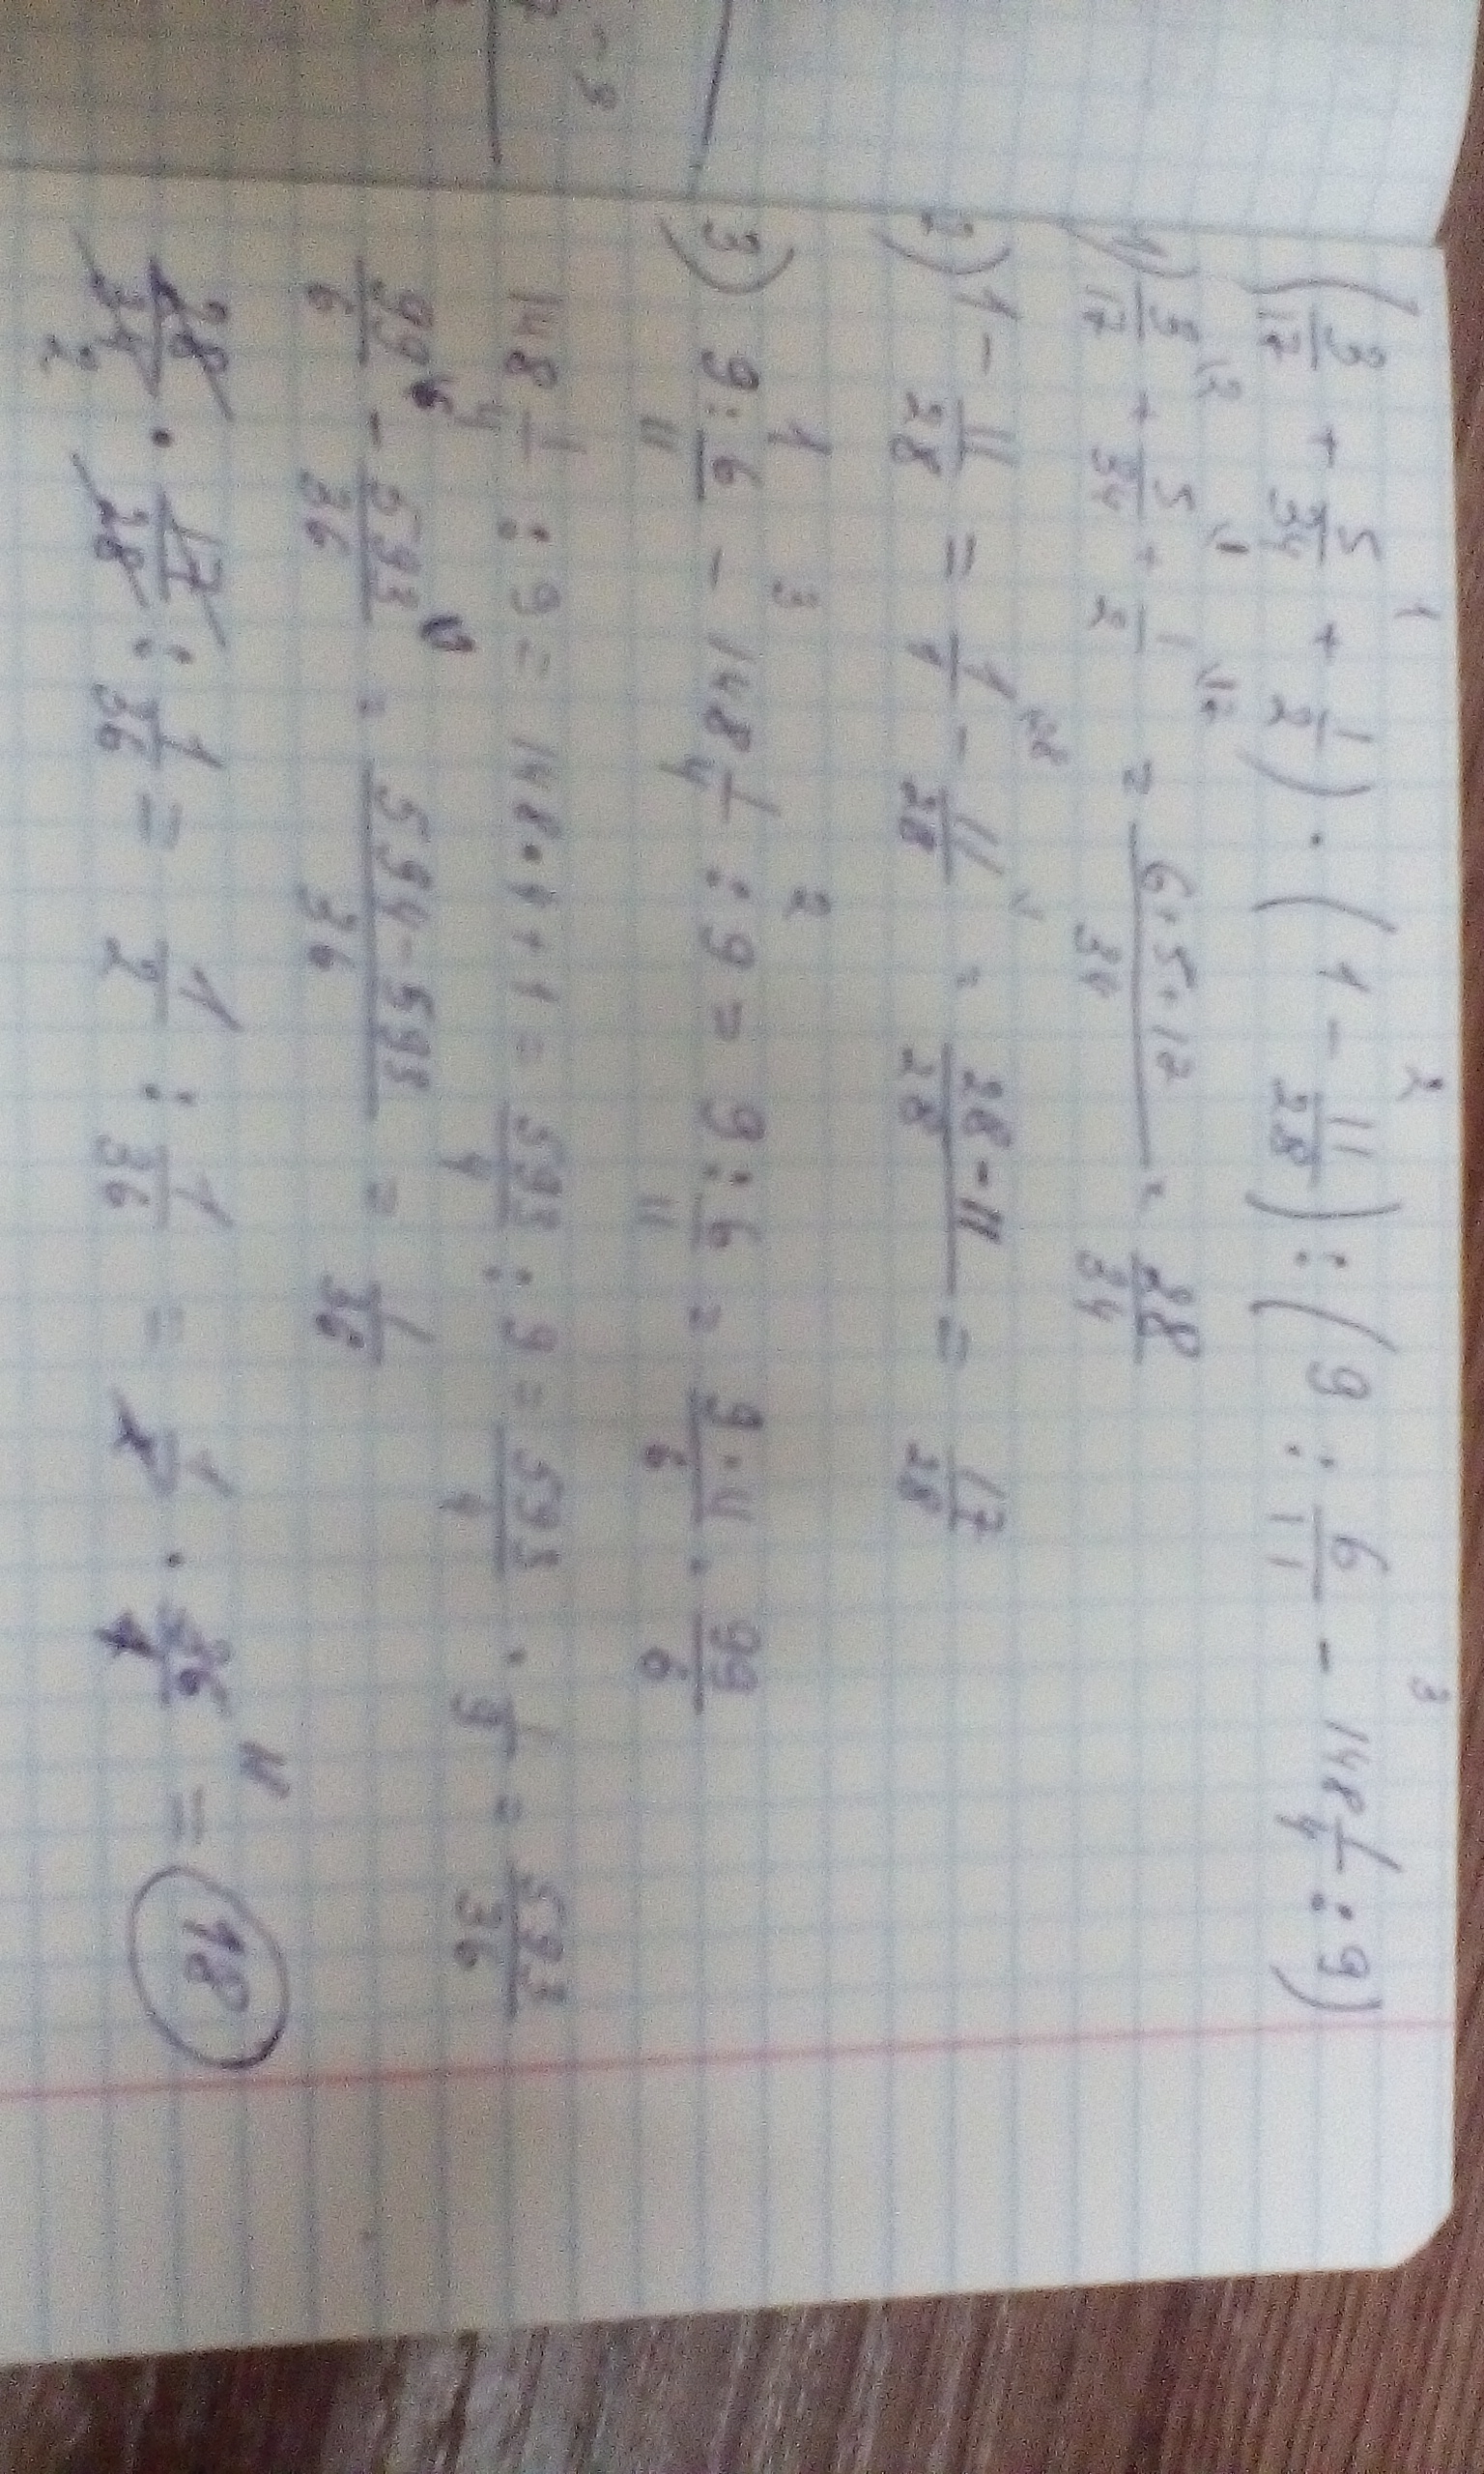 1 2 3
(3/17 + 5/34 + 1/2) · (1 - 11/28) : (9 : 6/11 - 148 1/4 : 9)
1) 3/17 \2 + 5/34 \1 + 1/2 \17 = 6+5+17/34 = 28/34
2) 1 - 11/28 = 1/1 \28 - 11/28 \1 = 28-11/28 = 17/28
1 3 2
3) 9 : 6/11 - 148 1/4 : 9 = 9 : 6/11 = 9·11/6 = 99/6
148 1/4 : 9 = 148·4+1 = 593/4 : 9 = 593/4 · 1/9 = 593/36
99/6 \6 - 593/36 \1 = 594-593/36 = 1/36
28/34 2 · 17/28 : 1/36 = 1/2 : 1/36 = 1/2 · 36/1 = 18